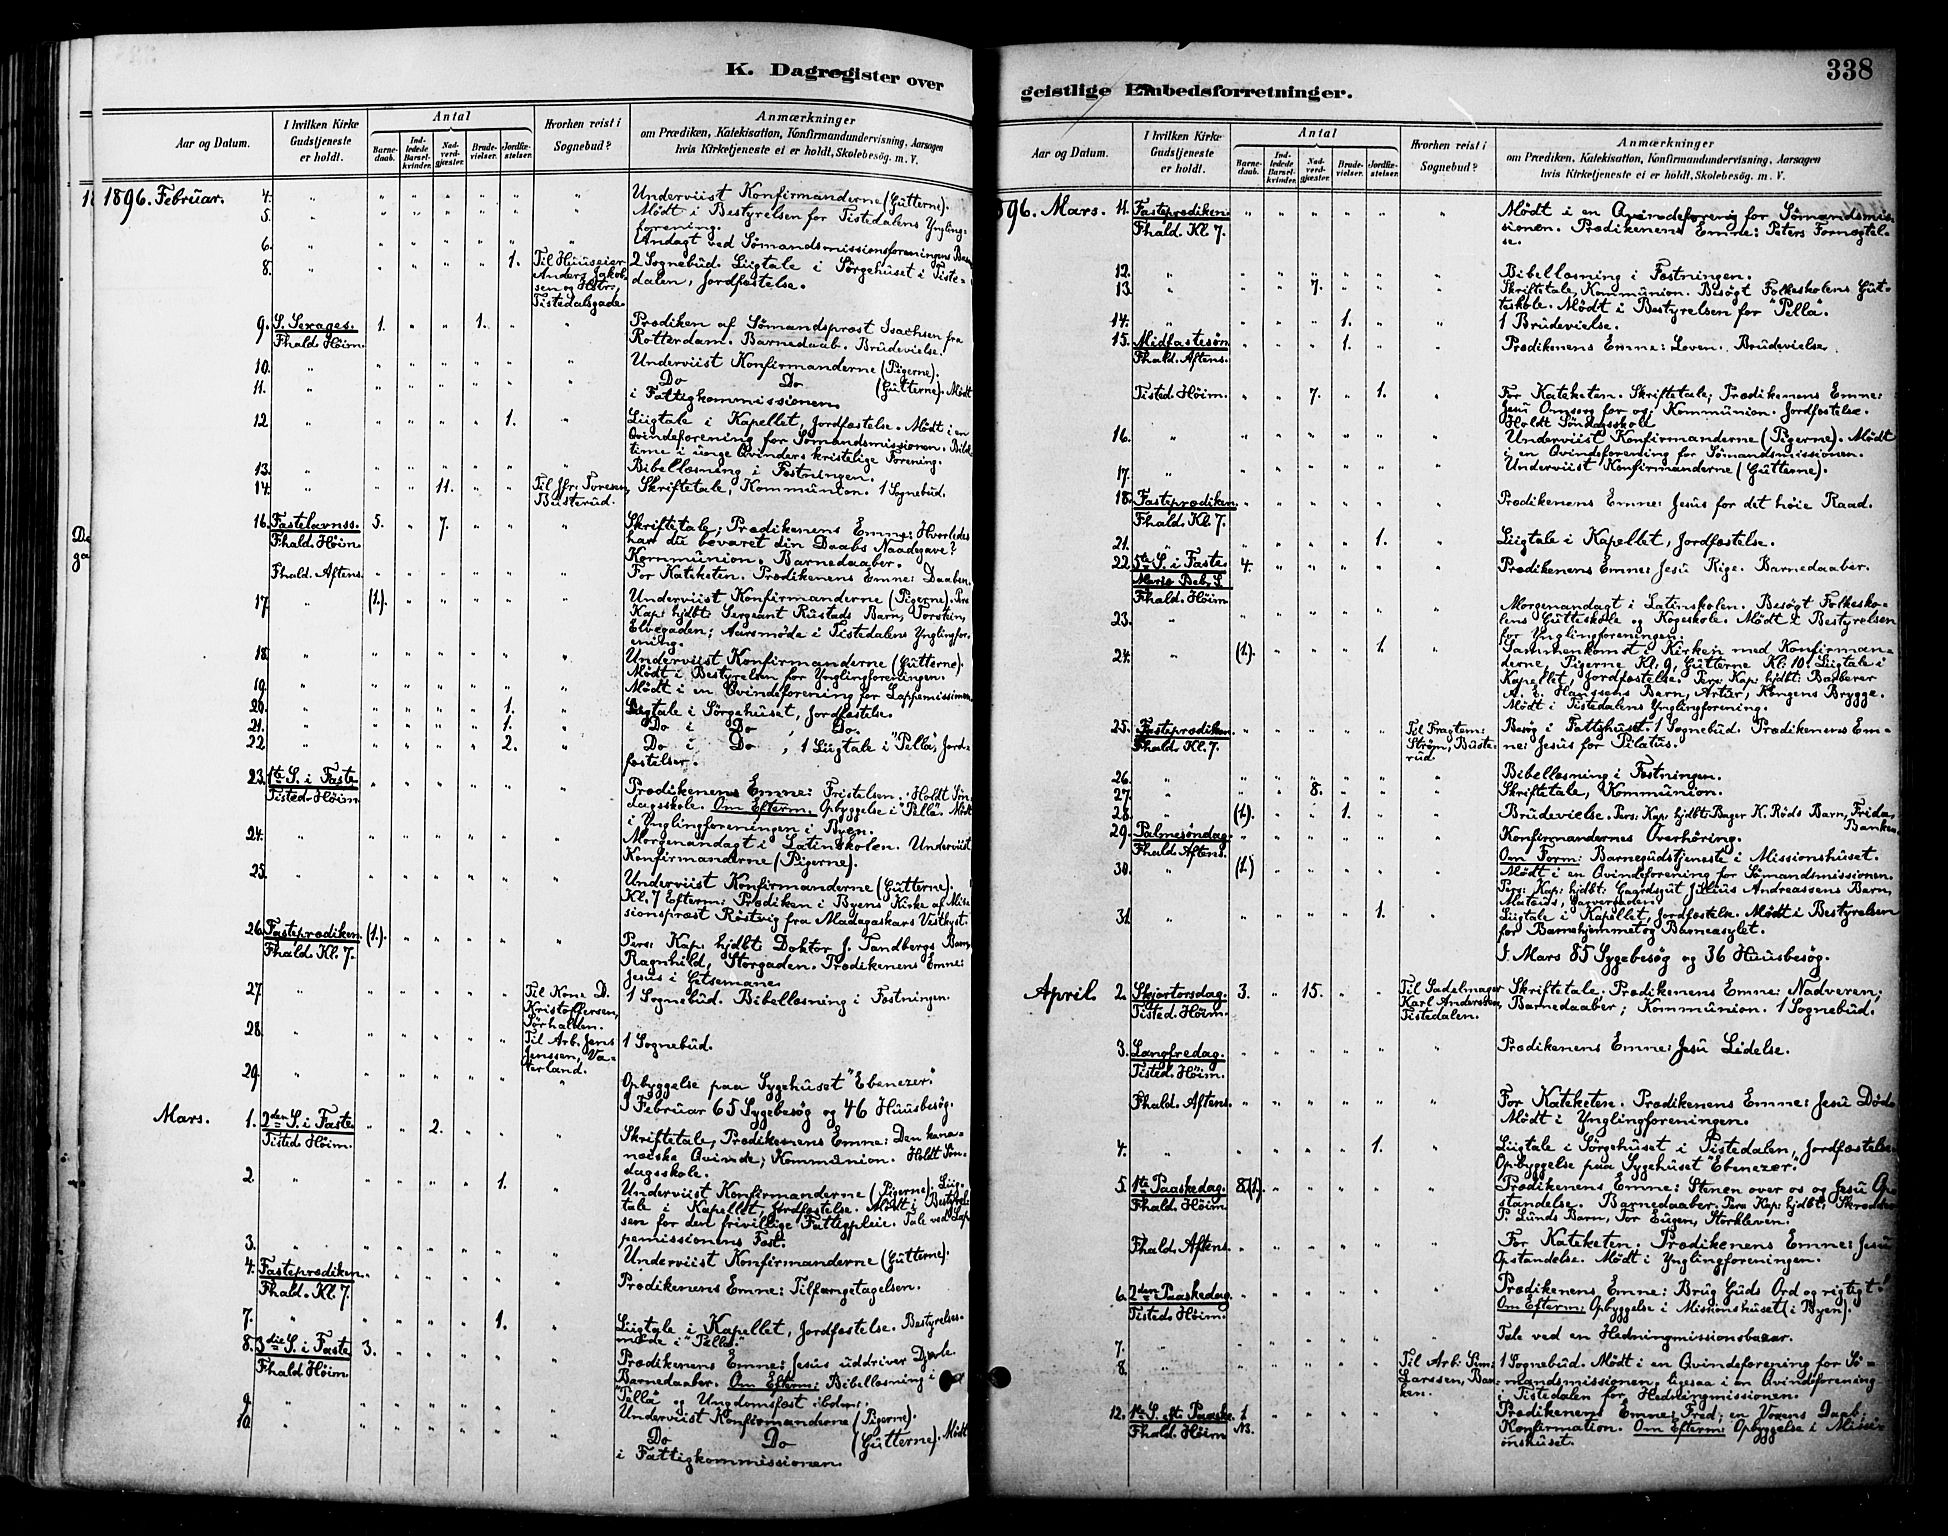 K. Dagregister over
Aar og Datum.
I hvilken Kirke Gudstjeneste er holdt.
Antal
Barnedaab.
Indledede Barselkvinder.
Nadverdgjæster.
Brudevielser.
Jordfæstelser.
Hvorhen reist i Sognebud?
Anmærkninger
om Prædiken, Katekisation, Konfirmandundervisning, Aarsagen
hvis Kirketjeneste ei er holdt, Skolebesøg. m. V.
1896. Februar. 4. Underviist Konfirmanderne (Gutterne).
5. Mødt i Bestyrelsen for Tistedalens Yngling-
forening.
6. Andagt ved Sømandsmissionsforeningens
8. 1. Til Huuseier Anders Jakobsen og Hstr., Tistedalsgade. 2 Sognebud. Liigtale i Sørgehuset i Tiste-
dalen, Jordfæstelse.
9. S. Sexages. Fhald. Høim. 1. 1. Prædiken af Sømandspræst Isachsen fra
Rotterdam. Barnedaab. Brudevielse.
10. Underviist Konfirmanderne (Pigerne).
11. Do Do (Gutterne). Mødt
i Fattigkommissionen.
12 1. Liigtale i Kapellet, Jordfæstelse. Mødt i en
Qvindeforening for Sømandsmissionen.
time i unge Qvinders kristelige Forening.
13. Bibellæsning i Fæstningen.
14. 11. Til Jfr. Toresen, Busterud. Skriftetale, Kommunion. 1 Sognebud.
16. Fastelavnss. Fhald. Høim 5. 7. Skriftetale; Prædikenens Emne: Hvorledes
har du bevaret din Daabs Naadegave?
Kommunion. Barnedaaber.
Fhald. Aftens. For Kateketen. Prædikenens Emne: Daaben.
17. (1.). Underviist Konfirmanderne (Pigerne). Pers:
Kap: hjdbt: Sergeant Rustads Barn, Torstein,
Elvegaden; Aarsmøde i Tistedalens Ynglingfor-
ening.
18. Underviist Konfirmanderne (Gutterne).
Mødt i Bestyrelsen for Ynglingforeningen.
19. Mødt i en Qvindeforening for Lappemissionen.
20. 1. Liigtale i Sørgehuset, Jordfæstelse.
21. 1. Do i Do, Do.
22. 2. Do i Do, 1 Liigtale i "Pella", Jord-
fæstelser.
23. 1ste S. i Faste Tisted. Høim Prædikenens Emne: Fristelsen. Holdt Søn-
dagsskole. Om Efterm. Opbyggelse i "Pella". Mødt
i Ynglingforeningen i Byen.
24. Morgenandagt i Latinskolen. Underviist
Konfirmanderne (Pigerne).
25. Underviist Konfirmanderne (Gutterne).
Kl. 7 Efterm: Prædiken i Byens Kirke af Mis-
sionspræst Røstvig fra Madagaskars Vestkyst.
26. Fasteprædiken. Fhald. Kl. 7. (1.). Pers: Kap: hjdbt: Doktor J. Tandbergs Barn,
Ragnhild, Storgaden. Prædikenens Emne:
Jesus i Getsemane.
27. Til Kone D. Kristoffersen, Sørhalden. 1 Sognebud. Bibellæsning i Fæstningen.
28. Til Arb. Jens Jenssen, Vaterland. 1 Sognebud.
29. Opbyggelse paa Sygehuset "Ebenezer."
I Februar 65 Sygebesøg og 46 Huusbesøg.
Mars. 1. 2den S. i Faste Tisted. Høim. 2. Skriftetale, Prædikenens Emne: Den kana-
næiske Qvinde; Kommunion. Holdt Søn-
dagsskole.
2. 1. Underviist Konfirmanderne (Pigerne). Liig-
tale i Kapellet, Jordfæstelse. Mødt i Bestyrel-
sen for den frivillige Fattigpleie. Tale ved Lap-
pemissionens Fest.
3. Underviist Konfirmanderne (Gutterne).
4. Fasteprædiken. Fhald. Kl. 7. Prædikenens Emne: Tilfangetagelsen.
7. 1. Liigtale i Kapellet, Jordfæstelse. Bestyrelses-
møde i "Pella."
8. 3die S. i Faste Fhald Høim. 3. Prædikenens Emne: Jesus uddriver Djævle.
Barnedaaber. Om Efterm: Bibellæsning i
"Pella" og Ungdomsfest ibdm:
9. Underviist Konfirmanderne (Pigerne).
10. Do Do (Gutterne). Mødt
i Fattigkommissionen.
338
geistlige Embedsforretninger.
Aar og Datum.
I hvilken Kirke Gudstjeneste er holdt.
Antal
Barnedaab.
Indledede Barselkvinder.
Nadverdgjæster.
Brudevielser.
Jordfæstelser.
Hvorhen reist i Sognebud?
Anmærkninger
om Prædiken, Katekisation, Konfirmandundervisning, Aarsagen
hvis Kirketjeneste ei er holdt, Skolebesøg. m. V.
896. Mars. 11. Fasteprædiken. Fhald. Kl. 7. Mødt i en Qvindeforening for Sømandsmis-
sionen. Prædikenens Emne: Peters Fornægtel-
se.
12. Bibellæsning i Fæstningen.
13. 7. Skriftetale, Kommunion. Besøgt Folkeskolens Gut-
teskole. Mødt i Bestyrelsen for "Pella".
14. 1. 1 Brudevielse.
15. Midfastesøn. Fhald. Aftens. 1. Prædikenens Emne: Loven. Brudevielse.
Tisted. Høim. 7. 1. For Kateketen. Skriftetale; Prædikenens Emne:
Jesu Omsorg for os; Kommunion. Jordfæstelse.
Holdt Søndagsskole
16. Underviist Konfirmanderne (Pigerne). Mødt
i en Qvindeforening for Sømandsmissionen.
17. Underviist Konfirmanderne (Gutterne).
18. Fasteprædiken. Fhald. Kl. 7. Prædikenens Emne: Jesus for det høie Raad.
21. 1. Liigtale i Kapellet, Jordfæstelse.
22. 5te S. i Faste. Mariæ Beb. S. Fhald. Høim 4. Prædikenens Emne: Jesu Rige. Barnedaaber.
23. Morgenandagt i Latinskolen. Besøgt Folkesko-
lens Gutteskole og Kogeskole. Mødt i Bestyrelsen
for Ynglingforeningen.
24. (1.). 1. Sammenkomst i Kirken med Konfirman-
derne, Pigerne Kl. 9, Gutterne Kl. 10. Liigtale i
Kapellet, Jordfæstelse. Pers: Kap: hjdbt: Barberer
A. E. Hanssens Barn, Artur, Kongens Brygge.
Mødt i Tistedalens Ynglingforening.
25. Fasteprædiken. Fhald. Kl. 7. Til Fragtem: Strøm, Busterud Besøg i Fattighuset. 1 Sognebud. Prædikenens Em-
ne: Jesus for Pilatus.
26. Bibellæsning i Fæstningen.
27. 8. Skriftetale, Kommunion.
28 (1.). 1. Brudevielse. Pers: Kap: hjdbt: Bager K. Røds Barn, Frida,
Banken.
29. Palmesøndag. Fhald. Aftens. Konfirmandernes Overhøring.
Om Form: Barnegudstjeneste i Missionshuset.
30. (1.) Mødt i en Qvindeforening for Sømandsmissionen.
Pers: Kap: hjdbt: Gaardsgut Julius Andreassens Barn,
Garvergaden.
31. 1. Liigtale i Kapellet, Jordfæstelse. Mødt i Bestyrelsen
for Barnehjemmet og Barneasylet.
I Mars 85 Sygebesøg og 36 Huusbesøg.
April. 2. Skjærtorsdag. Tisted. Høim. 3. 15. Til Sadelmager Karl Anderssen, Tistedalen. Skriftetale. Prædikenens Emne: Nadveren;
Barnedaaber; Kommunion. 1 Sognebud.
3. Langfredag. Tisted. Høim. Prædikenens Emne: Jesu Lidelse.
Fhald. Aftens. For Kateketen. Prædikenens Emne: Jesu Død.
Mødt i Ynglingforeningen.
4. 1. Liigtale i Sørgehuset i Tistedalen, Jordfæstelse.
Opbyggelse paa Sygehuset "Ebenezer."
5. 1ste Paaskedag. Fhald. Høim 8.(1.). Prædikenens Emne: Stenen over os og Jesu Op-
standelse. Barnedaaber. Pers: Kap: hjdbt: Skrædder
P. Lunds Barn, Tor Eugen, Storkleven.
Fhald. Aftens. For Kateketen. Prædikenens Emne: Jesu
Opstandelse. Mødt i Ynglingforeningen.
6. 2den Paaskedag. Tisted. Høim. Prædikenens Emne: Brug Guds Ord og rigtigt!
Om Efterm: Opbyggelse i Missionshuset (i Byen).
7. Tale ved en Hedningmissionsbazar.
8. Til Arb. Sim: Larssen, Banken. 1 Sognebud. Mødt i en Qvindeforening for Sø-
mandsmissionen, ligesaa i en Qvindeforening
i Tistedalen for Hedningmissionen.
12. 1ste S. eft. Paaske. Fhald. Høim 1 NB. Prædikenens Emne: Fred; en Voxens Daab;
Konfirmation. Om Efterm: Opbyggelse i Missi-
onshuset.